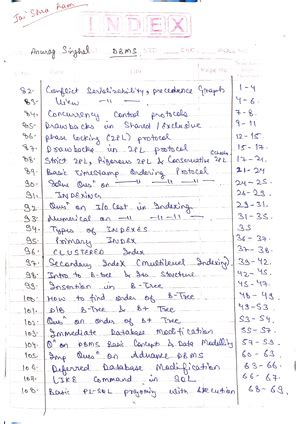 Jai Shree Ram
INDEX
Anurag Singhal DBMS
82. Conflict Serializability & precedence Graphs 1-4
83. View —11— 4-6.
84. Concurrency Control protocols 7-8.
85. Drawbacks in Shared / Exclusive 9-11
86. phase locking (2PL) protocol 12-15.
87. Drawbacks in 2PL protocol 15-17
88. Strict 2PL, Rigorous 2PL & Conservative 2PL 17-21.
89. Basic Timestamp Ordering Protocol 21-24
90. Solve Ques^n on —11— —11— 24-25.
91. INDEXING 26-28.
92. Ques^n on I/O Cost in Indexing 29-31.
93. Numerical on —11— —11— 31-35.
94. Types of INDEXES 35
95. Primary INDEX 36-37.
96. CLUSTERED Index 37-38.
97. Secondary Index (Multilevel Indexing) 39-42.
98. Intro to B-tree & its Structure 42-45
99. Insertion in B-Tree 45-47.
100. How to find order of B-Tree 48-49.
101. D/B B-Tree & B+ Tree 49-53.
102. Ques^n on order of B+ Tree 53-54.
103. Immediate Database Modification 55-57.
104. Q^n on DBMS Basic Concept & Data Modelling 57-59.
105. Imp Ques^n on Advance DBMS 60-63.
106. Deferred Database Modification 63-66.
107. LIKE Command in SQL 66-67.
108. Basic PL-SQL programming with Execution 68-69.